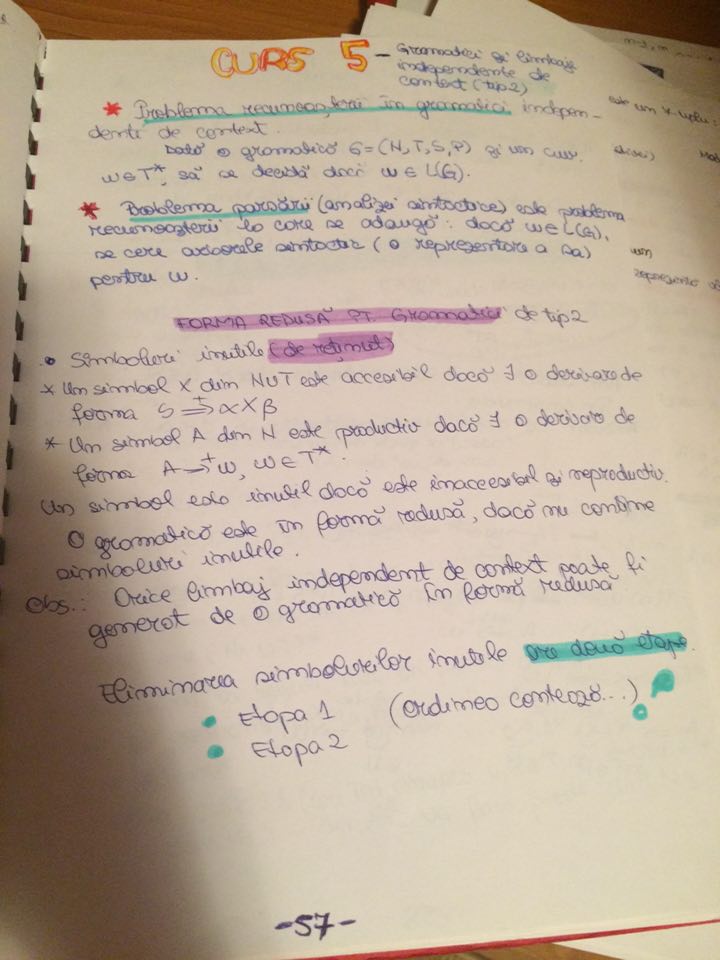 CURS 5 - Gramatici și limbaje
independente de
context (tip 2)
* Problema recunoașterii în gramatici indepen-
dente de context.
Dată o gramatică G=(N,T,S,P) și un cuv.
w∈T*, să se decidă dacă w∈L(G).
* Problema parsării (analizei sintactice) este problema
recunoașterii la care se adaugă: dacă w∈L(G),
se cere arborele sintactic (o reprezentare a sa)
pentru w.
FORMA REDUSĂ PT. Gramatici de tip 2
• Simboluri inutile (de reținut)
* Un simbol X din N∪T este accesibil dacă ∃ o derivare de
forma S ⇒+ αXβ
* Un simbol A din N este productiv dacă ∃ o derivare de
forma A →+ w, w∈T*.
Un simbol este inutil dacă este inaccesibil și neproductiv.
O gramatică este în formă redusă, dacă nu conține
simboluri inutile.
Obs.: Orice limbaj independent de context poate fi
generat de o gramatică în formă redusă
Eliminarea simbolurilor inutile are două etape.
• Etapa 1 (ordinea contează...)
• Etapa 2
-57-
este un 4-uplu:
un